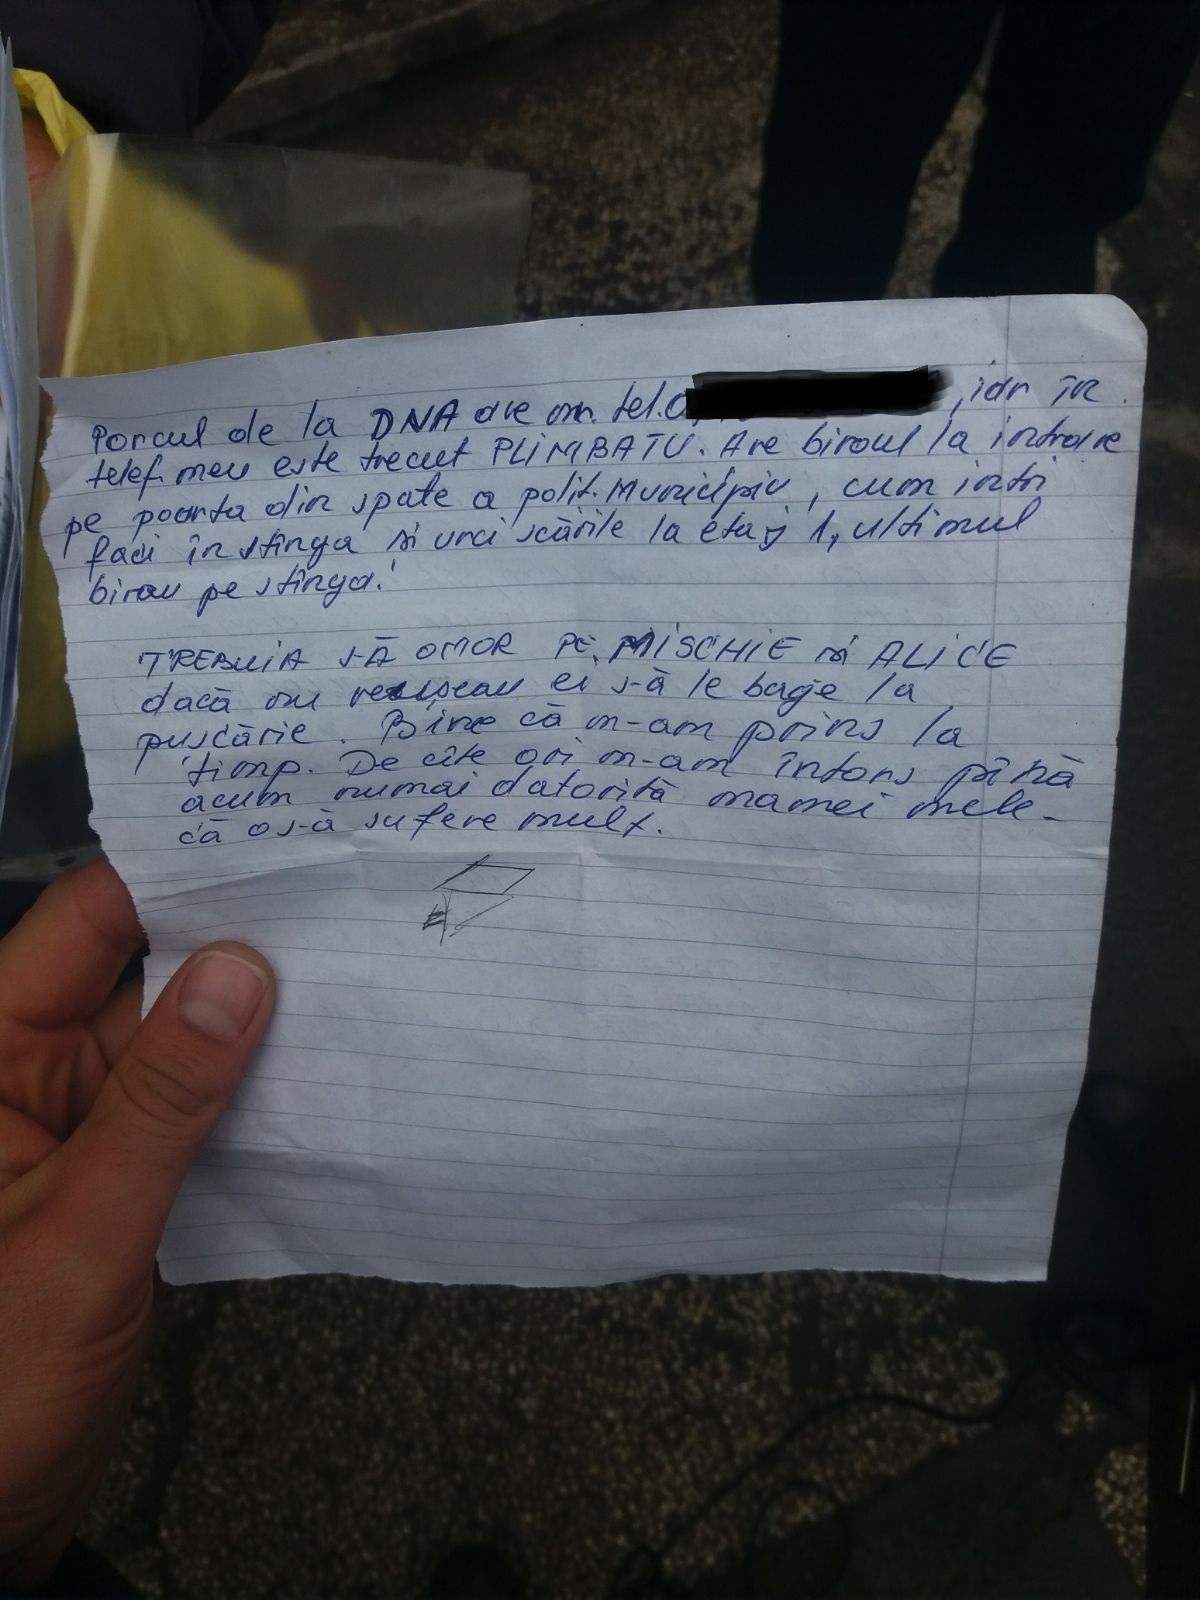 Porcul de la DNA are nr. tel. 0 , iar în
telef. meu este trecut PLIMBATU. Are biroul la intrare
pe poarta din spate a polit. Municipiu, cum intri
faci în stînga și urci scările la etaj 1, ultimul
birou pe stînga!
TREBUIA S-Ă OMOR PE MISCHIE și ALICE
dacă nu reuseau ei s-ă le bage la
pușcărie. Bine că m-am prins la
timp. De cîte ori m-am întors pînă
acum numai datorită mamei mele-
că o s-ă sufere mult.